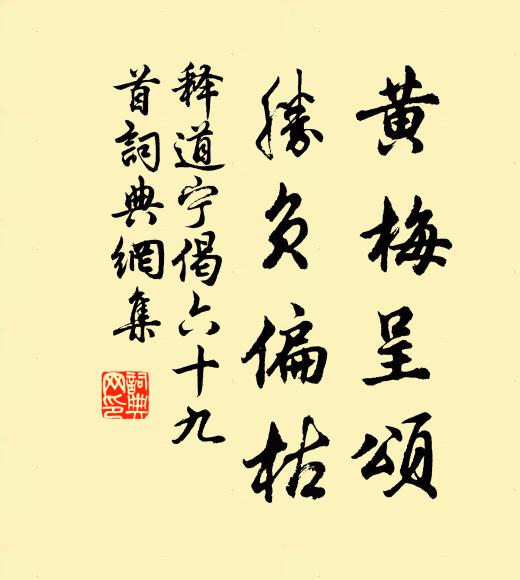 黄梅呈頌
勝負偏枯
释道宁偈六十九
首詞典網集
詞典網印